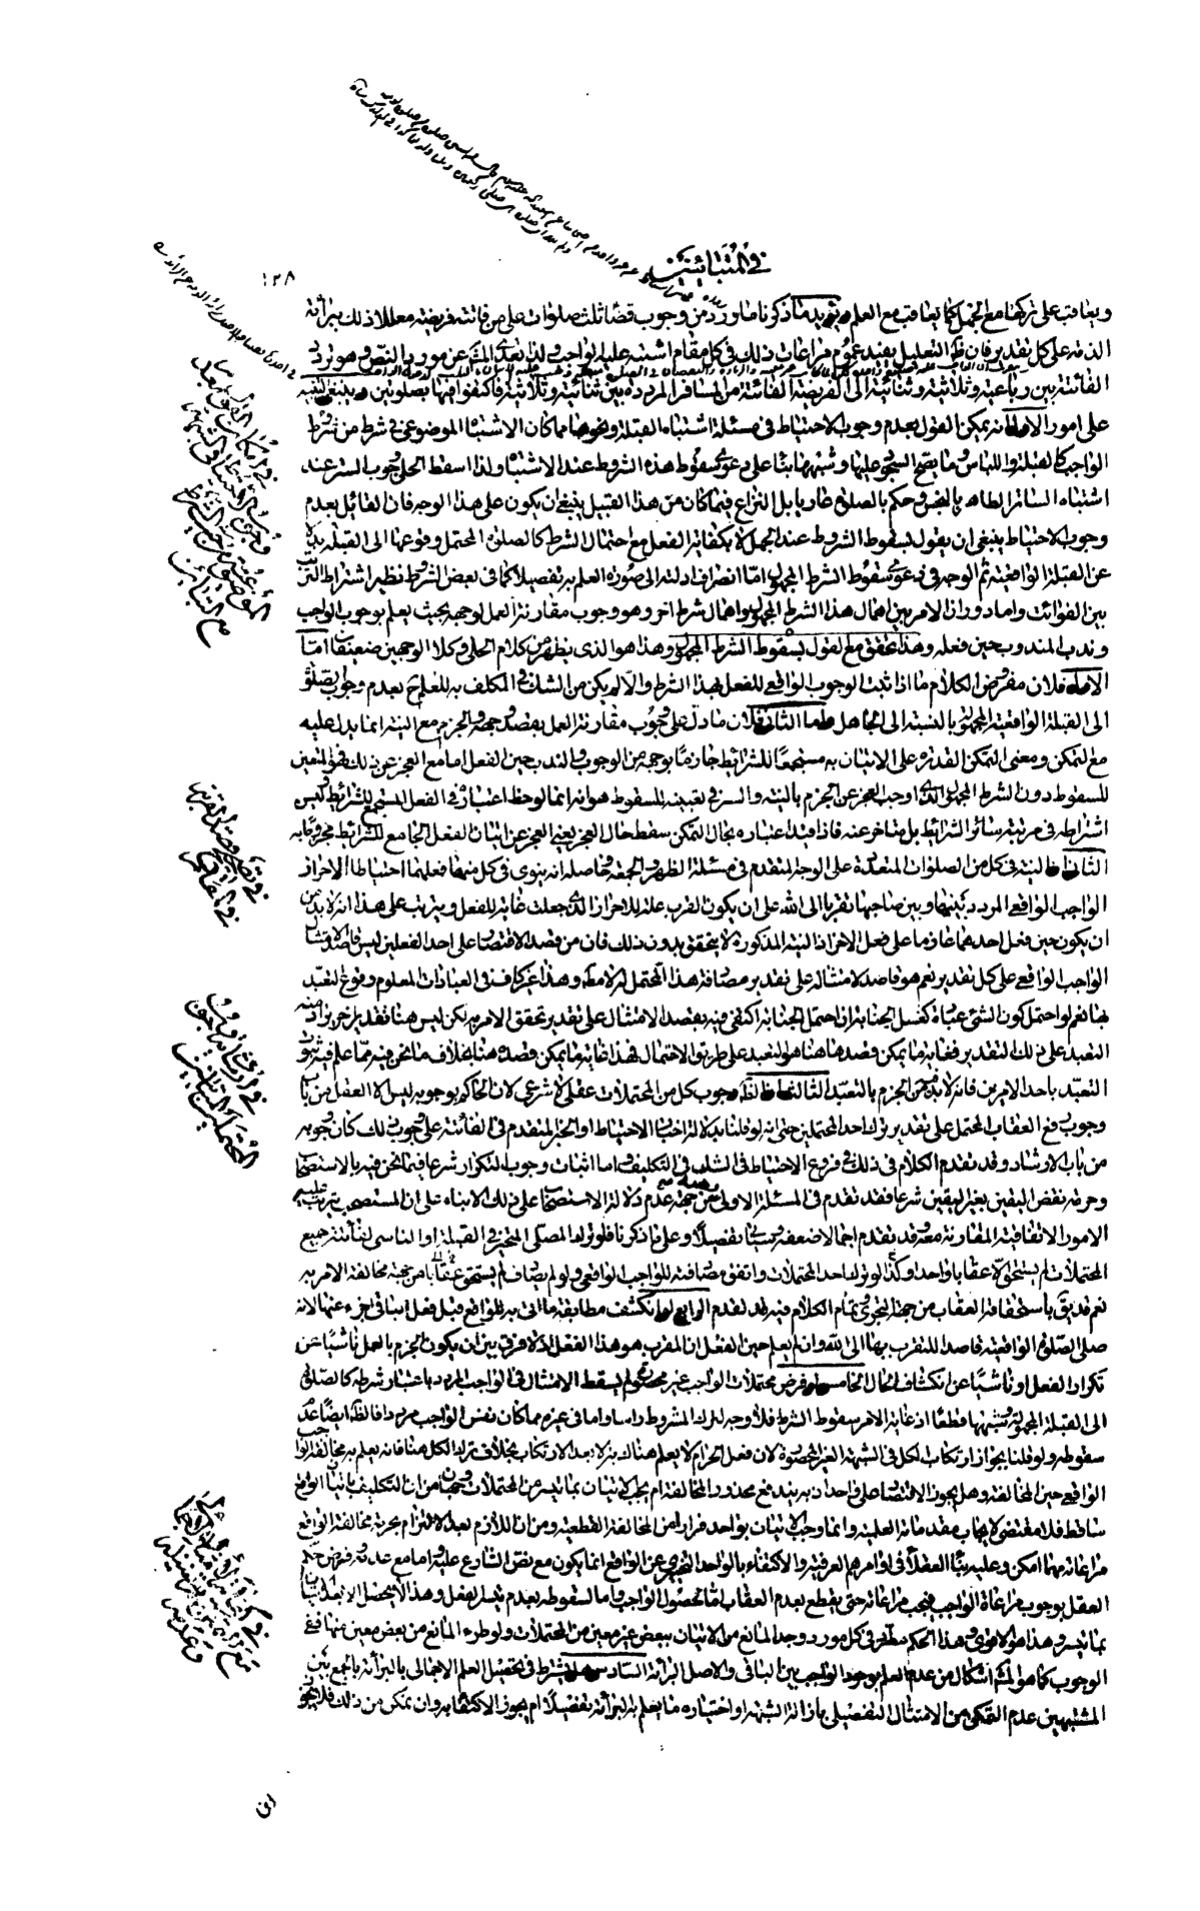 في المتباينين
١٢٨
ويعاقب على تركها مع الجهل كما يعاقب مع العلم ويؤيد ما ذكرنا ما ورد من وجوب قضاء ثلث صلوات على من فاتته فريضة معللا ذلك ببرائة
الذمة على كل تقدير فان ظ التعليل يفيد عموم مراعات ذلك في كل مقام اشتبه عليه الواجب ولذا تعدى المش عن مورد النص وهو تردد
الفائتة بين رباعية وثلاثية وثنائية الى الفريضة الفائتة من المسافر المرددة بين ثنائية وثلاثية فاكتفوا فيها بصلوتين وينبغي التنبيه
على امور الاول انه يمكن القول بعدم وجوب الاحتياط في مسئلة اشتباه القبلة ونحوها مما كان الاشتباه الموضوعي في شرط من شروط
الواجب كالقبلة واللباس وما يصح السجود عليه وشبهها بناء على دعوى سقوط هذه الشروط عند الاشتباه ولذا اسقط الحلي وجوب الستر عند
اشتباه الساتر الطاهر بالنجس وحكم بالصلوة عاريا بل النزاع فيما كان من هذا القبيل ينبغي ان يكون على هذا الوجه فان القائل بعدم
وجوب الاحتياط ينبغي ان يقول بسقوط الشروط عند الجهل لا بكفاية الفعل مع احتمال الشرط كالصلوة المحتمل وقوعها الى القبلة بدلا
عن القبلة الواقعية ثم الوجه في دعوى سقوط الشرط المجهول اما انصراف ادلته الى صورة العلم به تفصيلا كما في بعض الشروط نظير اشتراط الترتيب
بين الفوائت واما دوران الامر بين اهمال هذا الشرط المجهول واهمال شرط اخر وهو وجوب مقارنة العمل لوجهه بحيث يعلم بوجوب الواجب
وندب المندوب حين فعله وهذا يتحقق مع القول بسقوط الشرط المجهول وهذا هو الذي يظهر من كلام الحلي وكلا الوجهين ضعيفان اما
الاول فلان مفروض الكلام ما اذا ثبت الوجوب الواقعي للفعل بهذا الشرط والا لم يكن من الشك في المكلف به للعلم ح بعدم وجوب الصلوة
الى القبلة الواقعية المجهولة بالنسبة الى الجاهل واما الثاني فلان ما دل على وجوب مقارنة العمل بقصد وجهه والجزم مع النية انما يدل عليه
مع التمكن ومعنى التمكن القدرة على الاتيان به مستجمعا للشرائط جازما بوجهه من الوجوب والندب حين الفعل اما مع العجز عن ذلك فهو المتعين
للسقوط دون الشرط المجهول الذي اوجب العجز عن الجزم بالنية والسر في تعيينه للسقوط هو انه انما لوحظ اعتباره في الفعل المستجمع للشرائط وليس
اشتراطه في مرتبة سائر الشرائط بل متاخر عنه فاذا قيد اعتباره بحال التمكن سقط حال العجز يعني العجز عن اتيان الفعل الجامع للشرائط مجزوما به
الثاني ان النية في كل من الصلوات المتعددة على الوجه المتقدم في مسئلة الظهر والجمعة وحاصله انه ينوى في كل منهما فعلهما احتياطا لاحراز
الواجب الواقعي المردد بينها وبين صاحبها تقربا الى الله على ان يكون القرب علة للاحراز الذي جعلت غاية للفعل ويترتب على هذا انه لا بد من
ان يكون حين فعل احدهما عازما على فعل الاخر اذ النية المذكورة لا يتحقق بدون ذلك فان من قصد الاقتصار على احد الفعلين ليس قاصدا لامتثال
الواجب الواقعي على كل تقدير نعم هو قاصد لامتثاله على تقدير مصادفة هذا المحتمل له لا مط وهذا غير كاف في العبادات المعلوم وقوع التعبد
بها نعم لو احتمل كون الشئ عبادة كغسل الجنابة ان احتمل الجنابة اكتفى فيه بقصد الامتثال على تقدير تحقق الامر به لكن ليس هنا تقدير اخر يراد منه
التعبد على ذلك التقدير فغاية ما يمكن قصده هنا هو التعبد على طريق الاحتمال فهذا غاية ما يمكن قصده هنا بخلاف ما نحن فيه مما علم فيه ثبوت
التعبد باحد الامرين فانه لا بد فيه من الجزم بالتعبد الثالث ان الظ ان وجوب كل من المحتملات عقلي لا شرعي لان الحاكم بوجوبه ليس الا العقل من باب
وجوب دفع العقاب المحتمل على تقدير ترك احد المحتملين حتى انه لو قلنا بدلالة اخبار الاحتياط او الخبر المتقدم في الفائتة على وجوب ذلك كان وجوبه
من باب الارشاد وقد تقدم الكلام في ذلك في فروع الاحتياط في الشك في التكليف واما اثبات وجوب التكرار شرعا فيما نحن فيه بالاستصحاب
وحرمة نقض اليقين بغير اليقين شرعا فقد تقدم في المسئلة الاولى عدم دلالة الاستصحاب على ذلك الا بناء على ان المستصحب يترتب عليه
الامور الاتفاقية المقارنة معه وقد تقدم اجمالا ضعفه وسياتي تفصيلا وعلى ما ذكرنا فلو ترك المصلي المتحير في القبلة او الناسي لفائتة جميع
المحتملات لم يستحق الا عقابا واحدا وكذا لو ترك احد المحتملات واتفق مصادفته للواجب الواقعي ولو لم يصادف لم يستحق عقابا من جهة مخالفة الامر به
نعم قد يق باستحقاقه العقاب من جهة التجري وتمام الكلام فيه قد تقدم الرابع لو انكشف مطابقة ما اتى به للواقع قبل فعل الباقي اجزء عنه لانه
صلى الصلوة الواقعية قاصدا للتقرب بها الى الله وان لم يعلم حين الفعل ان المقرب هو هذا الفعل اذ لا فرق بين ان يكون الجزم بالعمل ناشيا عن
تكرار الفعل او ناشيا عن انكشاف الحال الخامس لو فرض محتملات الواجب غير محصورة لم يسقط الامتثال في الواجب المردد باعتبار شرطه كالصلوة
الى القبلة المجهولة وشبهها قطعا اذ غاية الامر سقوط الشرط فلا وجه لترك المشروط راسا واما في غيره مما كان نفس الواجب مرددا فالظ ايضا عدم
سقوطه ولو قلنا بجواز ارتكاب الكل في الشبهة الغير المحصورة لان فعل الحرام لا يعلم هناك به الا بعد الارتكاب بخلاف ترك الكل هنا فانه يعلم به مخالفة الواجب
الواقعي حين المخالفة وهل يجوز الاقتصار على واحد اذ به يندفع محذور المخالفة ام يجب الاتيان بما تيسر من المحتملات وجهان من ان التكليف باتيان الواقع
ساقط فلا مقتضى لايجاب مقدماته العلمية وانما وجب الاتيان بواحد فرارا من المخالفة القطعية ومن ان اللازم بعد الالتزام بحرمة مخالفة الواقع
مراعاته مهما امكن وعليه بناء العقلاء في اوامرهم العرفية والاكتفاء بالواحد التخييري عن الواقع انما يكون مع نص الشارع عليه واما مع عدمه وفرض حكم
العقل بوجوب مراعاة الواجب فيجب مراعاته حتى يقطع بعدم العقاب اما لحصول الواجب واما لسقوطه بعدم تيسر الفعل وهذا لا يحصل الا بعد الاتيان
بما تيسر وهذا هو الاقوى وهذا الحكم مطرد في كل مورد وجد المانع من الاتيان ببعض غير معين من المحتملات ولو طرء المانع من بعض معين منها ففي
الوجوب كما هو المش اشكال من عدم العلم بوجود الواجب بين الباقي والاصل البرائة السادس هل يشترط في تحصيل العلم الاجمالي بالبرائة بالجمع بين
المشتبهين عدم التمكن من الامتثال التفصيلي بازالة الشبهة او اختياره ما يعلم به البرائة تفصيلا ام يجوز الاكتفاء به وان تمكن من ذلك فلا يجوز